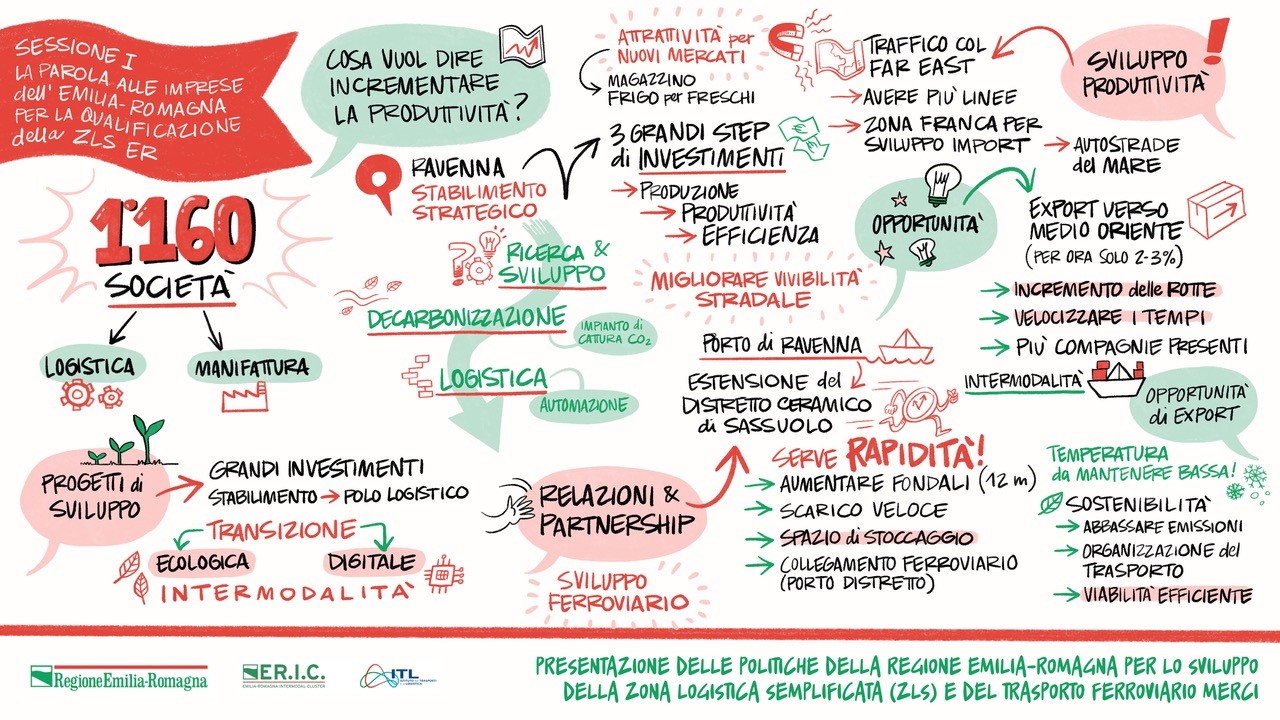 SESSIONE I
LA PAROLA ALLE IMPRESE
dell'EMILIA-ROMAGNA
PER LA QUALIFICAZIONE
della ZLS ER
1'160
SOCIETÀ
LOGISTICA
MANIFATTURA
PROGETTI di
SVILUPPO
GRANDI INVESTIMENTI
STABILIMENTO → POLO LOGISTICO
TRANSIZIONE
ECOLOGICA
DIGITALE
INTERMODALITÀ
COSA VUOL DIRE
INCREMENTARE
LA PRODUTTIVITÀ?
RAVENNA
STABILIMENTO
STRATEGICO
RICERCA &
SVILUPPO
DECARBONIZZAZIONE
IMPIANTO di
CATURA CO₂
LOGISTICA
AUTOMAZIONE
ATTRATTIVITÀ per
NUOVI MERCATI
MAGAZZINO
FRIGO per FRESCHI
3 GRANDI STEP
di INVESTIMENTI
→ PRODUZIONE
→ PRODUTTIVITÀ
→ EFFICIENZA
MIGLIORARE VIVIBILITÀ
STRADALE
RELAZIONI &
PARTNERSHIP
SVILUPPO
FERROVIARIO
SVILUPPO
PRODUTTIVITÀ
!
TRAFFICO COL
FAR EAST
→ AVERE PIÙ LINEE
→ ZONA FRANCA PER
SVILUPPO IMPORT
→ AUTOSTRADE
del MARE
OPPORTUNITÀ
EXPORT VERSO
MEDIO ORIENTE
(PER ORA SOLO 2-3%)
→ INCREMENTO delle ROTTE
→ VELOCIZZARE I TEMPI
→ PIÙ COMPAGNIE PRESENTI
PORTO di RAVENNA
ESTENSIONE del
DISTRETTO CERAMICO
di SASSUOLO
INTERMODALITÀ
OPPORTUNITÀ
di EXPORT
SERVE RAPIDITÀ!
→ AUMENTARE FONDALI (12 m)
→ SCARICO VELOCE
→ SPAZIO di STOCCAGGIO
→ COLLEGAMENTO FERROVIARIO
(PORTO DISTRETTO)
TEMPERATURA
da MANTENERE BASSA!
SOSTENIBILITÀ
→ ABBASSARE EMISSIONI
→ ORGANIZZAZIONE del
TRASPORTO
→ VIABILITÀ EFFICIENTE
RegioneEmilia-Romagna
ER.I.C.
EMILIA-ROMAGNA INTERMODAL CLUSTER
ITL
PRESENTAZIONE DELLE POLITICHE DELLA REGIONE EMILIA-ROMAGNA PER LO SVILUPPO
DELLA ZONA LOGISTICA SEMPLIFICATA (ZLS) E DEL TRASPORTO FERROVIARIO MERCI